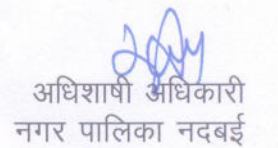 अधिशाषी अधिकारी
नगर पालिका नदबई